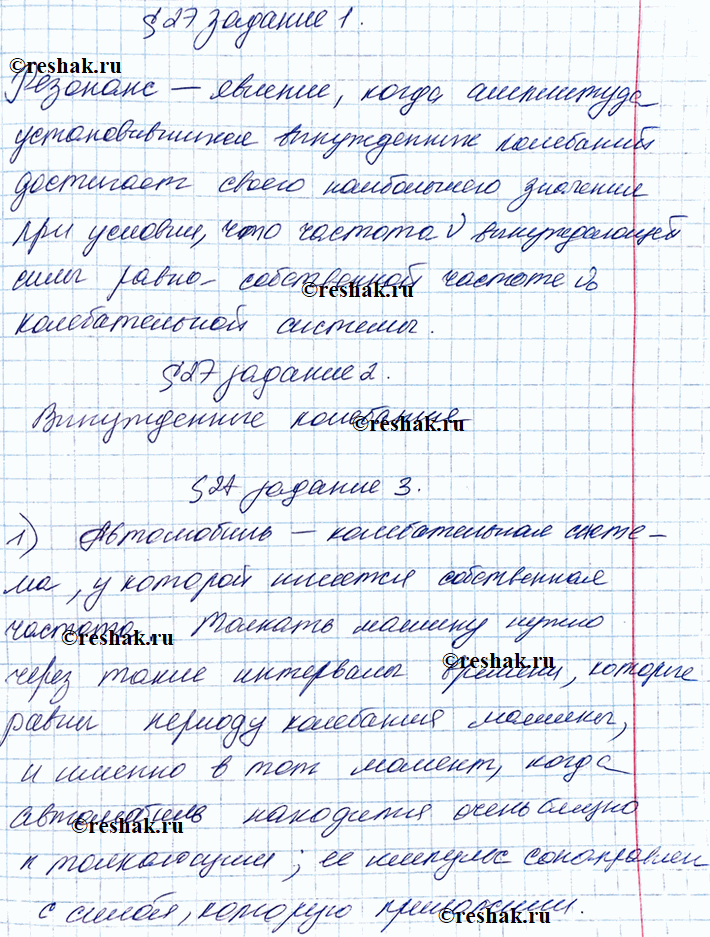 §27 задание 1.
©reshak.ru
Резонанс — явление, когда амплитуда
установившихся вынужденных колебаний
достигает своего наибольшего значения
при условии, что частота ν вынуждающей
силы равна собственной частоте ν₀
©reshak.ru
колебательной системы.
§27 задание 2.
Вынужденные колебания
©reshak.ru
§27 задание 3.
1) Автомобиль — колебательная систе-
ма, у которой имеется собственная
частота. Толкать машину нужно
©reshak.ru
через такие интервалы времени, которые
©reshak.ru
равны периоду колебания машины,
и именно в тот момент, когда
автомобиль находится очень близко
©reshak.ru
к толкающим; ее импульс сонаправлен
с силой, которую приложили.
©reshak.ru